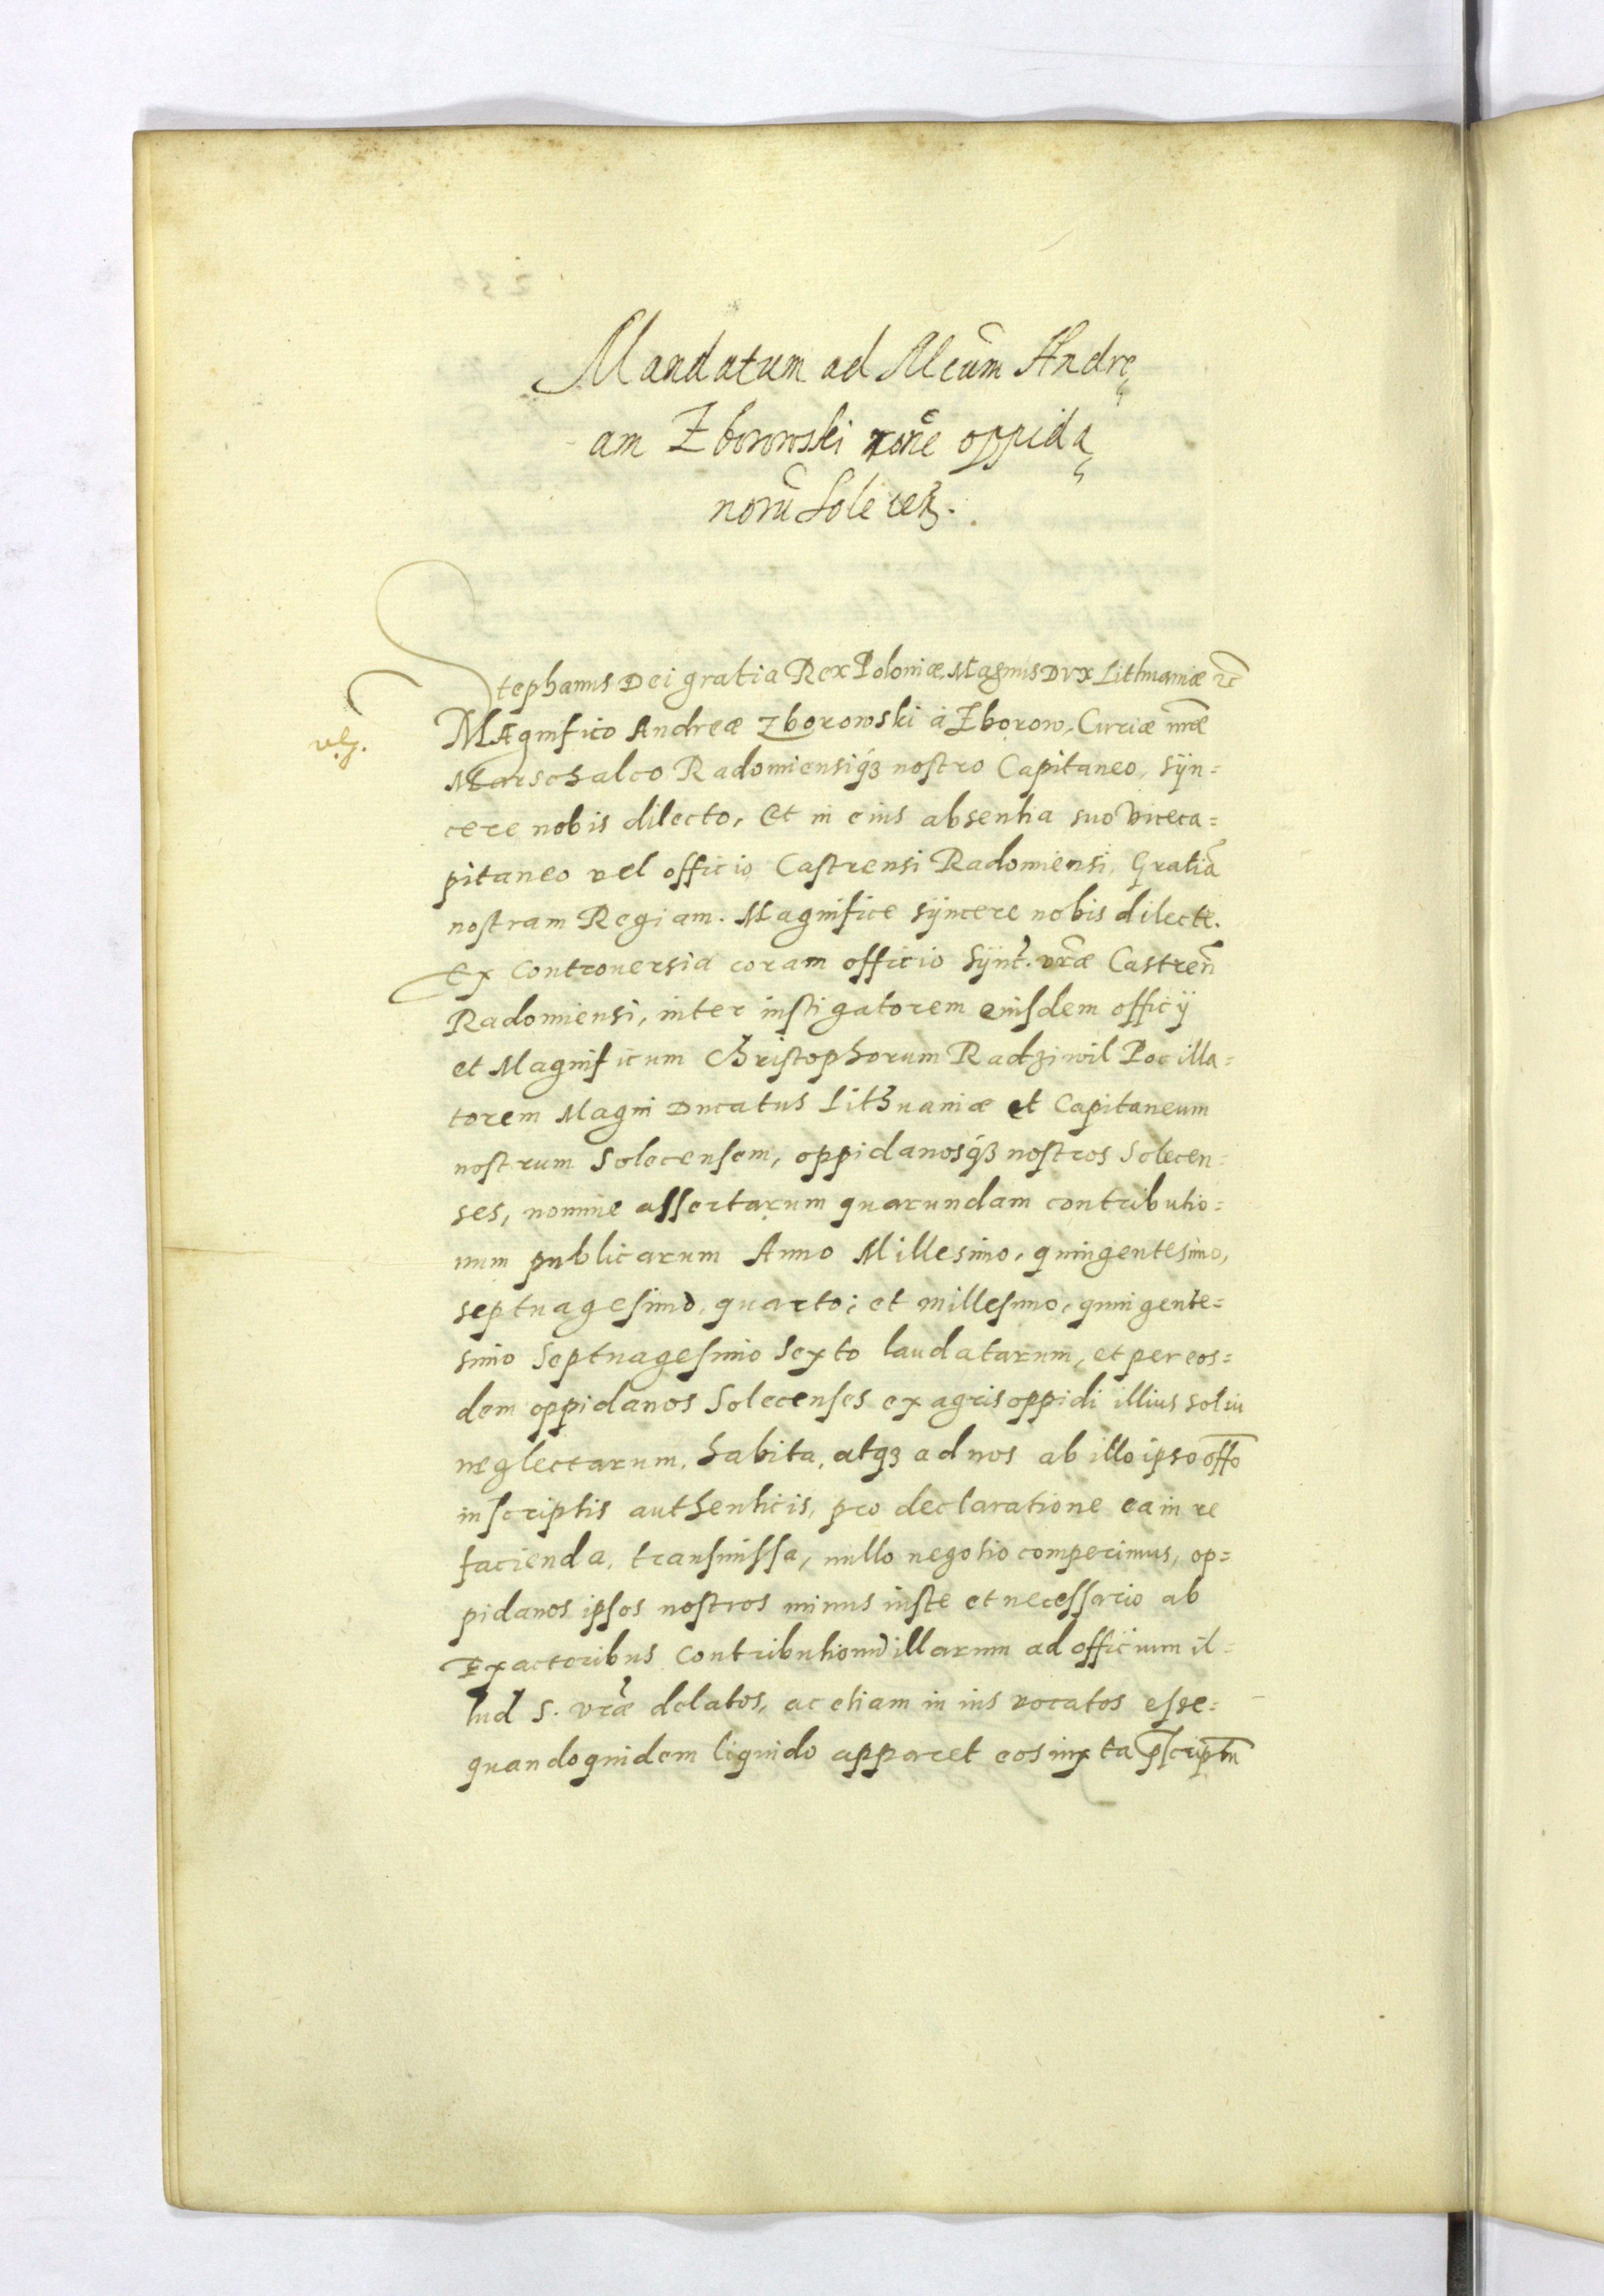 Mandatum ad Mcūm Andre
am Zborowski rōne oppida
norū Solecen̄.
Stephanus Dei gratia Rex Poloniæ, Magnus Dux Lithuaniæ ꝛc̄
Magnifico Andreæ Zborowski à Zborow, Curiæ nr̄æ
Marschalco Radomiensiqꝫ nostro Capitaneo, syn=
cere nobis dilecto, Et in eius absentia suo Viceca=
pitaneo vel officio Castrensi Radomiensi, Gratiā
nostram Regiam. Magnifice syncere nobis dilecte.
Ex controuersia coram officio Synt. vr̄æ Castren̄
Radomiensi, inter instigatorem eiusdem officÿ
et Magnificum Christophorum Radziwil Pocilla=
torem Magni Ducatus Lithuaniæ et Capitaneum
nostrum Solecensem, oppidanosqꝫ nostros Solecen=
ses, nomine assertarum quarundam contributio=
num publicarum Anno Millesimo, quingentesimo,
septuagesimo, quarto; et millesimo, quingente=
simo Septuagesimo Sexto laudatarum, et per eos=
dem oppidanos Solecenses ex agris oppidi illius solui
neglectarum, habita, atqꝫ ad nos ab illo ipso off̄o
in scriptis authenticis, pro declaratione ea in re
facienda, transmissa, nullo negotio comperimus, op=
pidanos ipsos nostros minus iuste et necessario ab
Exactoribus Contributionū illarum ad officium il=
lud S. vr̄æ delatos, ac etiam in ius vocatos esse=
quandoquidem liquido apparet eos iuxta p̄scriptū